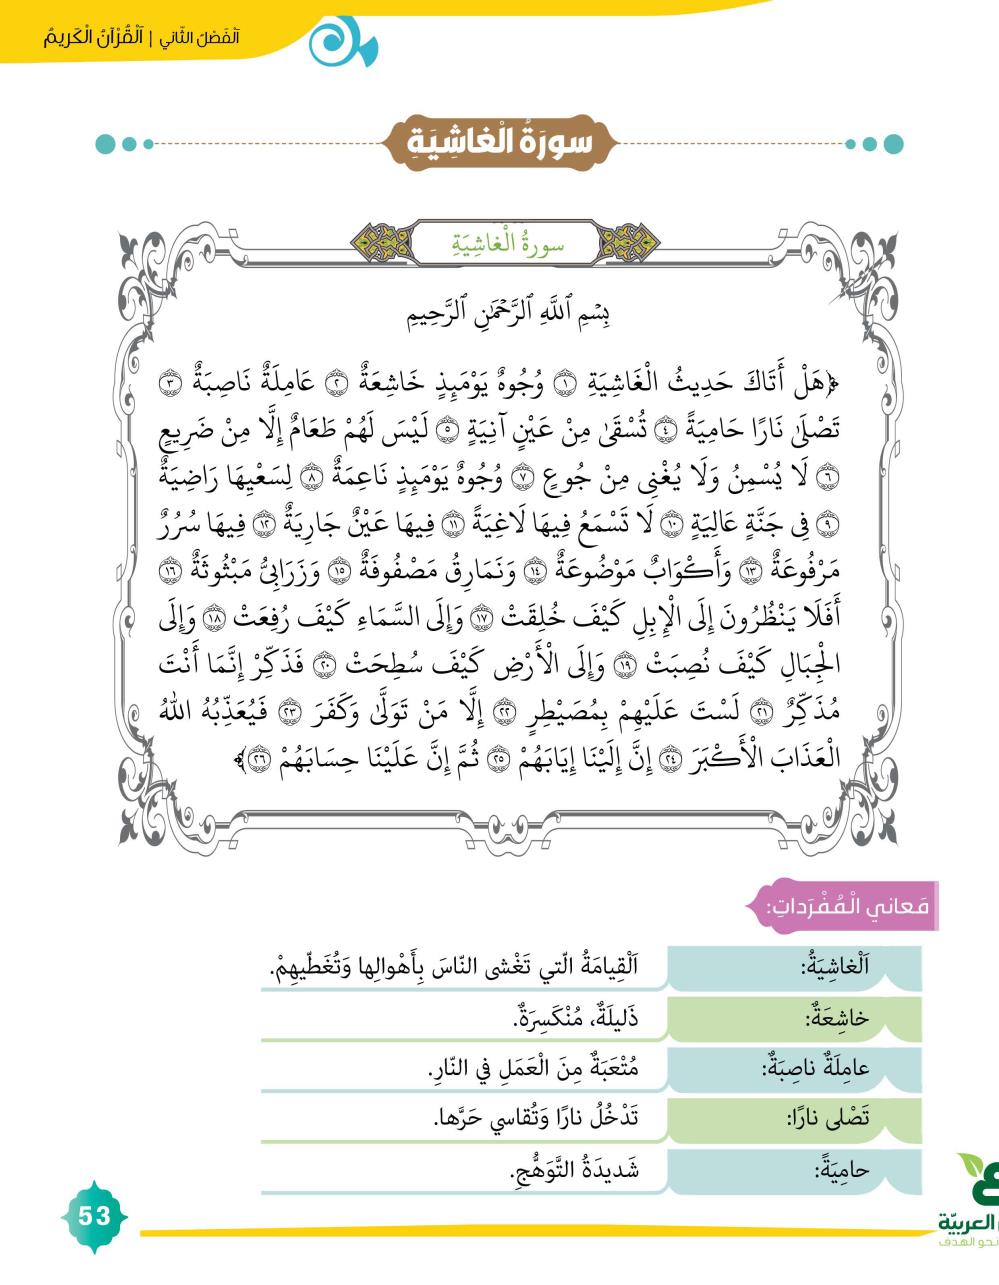 اَلْفَصْلُ الثّاني | اَلْقُرْآنُ الْكَريمُ
سورَةُ الْغاشِيَةِ
سورةُ الْغاشِيَةِ
بِسْمِ ٱللَّهِ ٱلرَّحْمَٰنِ ٱلرَّحِيمِ
﴿هَلْ أَتَاكَ حَدِيثُ الْغَاشِيَةِ ١ وُجُوهٌ يَوْمَئِذٍ خَاشِعَةٌ ٢ عَامِلَةٌ نَاصِبَةٌ ٣
تَصْلَىٰ نَارًا حَامِيَةً ٤ تُسْقَىٰ مِنْ عَيْنٍ آنِيَةٍ ٥ لَيْسَ لَهُمْ طَعَامٌ إِلَّا مِنْ ضَرِيعٍ
٦ لَا يُسْمِنُ وَلَا يُغْنِى مِنْ جُوعٍ ٧ وُجُوهٌ يَوْمَئِذٍ نَاعِمَةٌ ٨ لِسَعْيِهَا رَاضِيَةٌ
٩ فِى جَنَّةٍ عَالِيَةٍ ١٠ لَا تَسْمَعُ فِيهَا لَاغِيَةً ١١ فِيهَا عَيْنٌ جَارِيَةٌ ١٢ فِيهَا سُرُرٌ
مَرْفُوعَةٌ ١٣ وَأَكْوَابٌ مَوْضُوعَةٌ ١٤ وَنَمَارِقُ مَصْفُوفَةٌ ١٥ وَزَرَابِىُّ مَبْثُوثَةٌ ١٦
أَفَلَا يَنْظُرُونَ إِلَى الْإِبِلِ كَيْفَ خُلِقَتْ ١٧ وَإِلَى السَّمَاءِ كَيْفَ رُفِعَتْ ١٨ وَإِلَى
الْجِبَالِ كَيْفَ نُصِبَتْ ١٩ وَإِلَى الْأَرْضِ كَيْفَ سُطِحَتْ ٢٠ فَذَكِّرْ إِنَّمَا أَنْتَ
مُذَكِّرٌ ٢١ لَسْتَ عَلَيْهِمْ بِمُصَيْطِرٍ ٢٢ إِلَّا مَنْ تَوَلَّىٰ وَكَفَرَ ٢٣ فَيُعَذِّبُهُ اللهُ
الْعَذَابَ الْأَكْبَرَ ٢٤ إِنَّ إِلَيْنَا إِيَابَهُمْ ٢٥ ثُمَّ إِنَّ عَلَيْنَا حِسَابَهُمْ ٢٦﴾
مَعاني الْمُفْرَداتِ:
اَلْغاشِيَةُ: اَلْقِيامَةُ الّتي تَغْشى النّاسَ بِأَهْوالِها وَتُغَطّيهِمْ.
خاشِعَةٌ: ذَليلَةٌ، مُنْكَسِرَةٌ.
عامِلَةٌ ناصِبَةٌ: مُتْعَبَةٌ مِنَ الْعَمَلِ في النّارِ.
تَصْلى نارًا: تَدْخُلُ نارًا وَتُقاسي حَرَّها.
حامِيَةً: شَديدَةُ التَّوَهُّجِ.
العربيّة
نحو الهدف
53